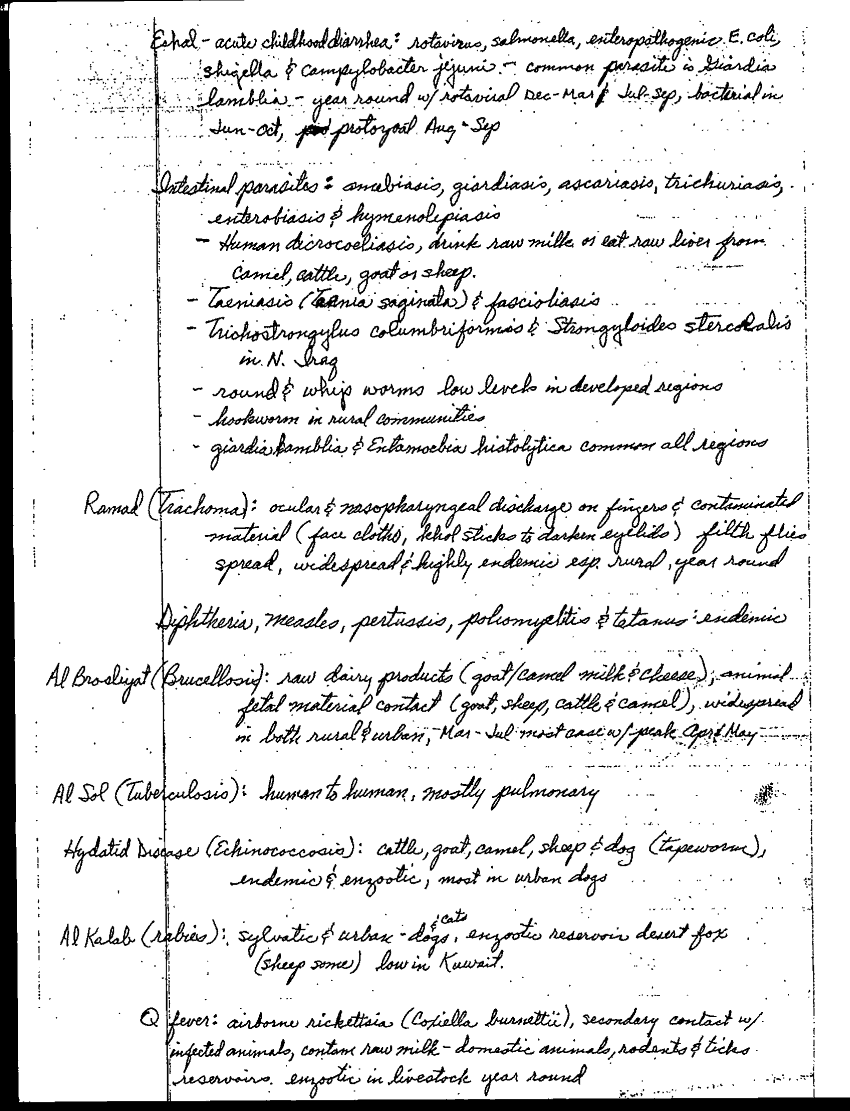 Eshal - acute childhood diarrhea: rotavirus, salmonella, enteropathogenic E. coli,
shigella & campylobacter jejuni - common parasite is Giardia
lamblia - year round w/ rotaviral Dec-Mar & Jul-Sep, bacterial in
Jun-Oct, protozoal Aug-Sep
Intestinal parasites: amebiasis, giardiasis, ascariasis, trichuriasis,
enterobiasis & hymenolepiasis
- Human dicrocoeliasis, drink raw milk or eat raw liver from
camel, cattle, goat or sheep.
- Taeniasis (Taenia saginata) & fascioliasis
- Trichostrongylus columbriformis & Strongyloides stercoralis
in N. Iraq
- round & whip worms low levels in developed regions
- hookworm in rural communities
- giardia lamblia & Entamoebia histolytica common all regions
Ramad (Trachoma): ocular & nasopharyngeal discharge on fingers & contaminated
material (face cloths, khol sticks to darken eyelids) filth flies
spread, widespread & highly endemic esp. rural, year round
Diphtheria, measles, pertussis, poliomyelitis & tetanus: endemic
Al Brosliyat (Brucellosis): raw dairy products (goat/camel milk & cheese), animal
fetal material contact (goat, sheep, cattle & camel), widespread
in both rural & urban, - Mar-Jul most case w/ peak Apr & May
Al Sol (Tuberculosis): human to human, mostly pulmonary
Hydatid Disease (Echinococcosis): cattle, goat, camel, sheep & dog (tapeworm),
endemic & enzootic, most in urban dogs
Al Kalab (rabies): sylvatic & urban - dogs & cats, enzootic reservoir desert fox
(sheep some) low in Kuwait.
Q fever: airborne rickettsia (Coxiella burnettii), secondary contact w/
infected animals, contam raw milk - domestic animals, rodents & ticks
reservoirs. enzootic in livestock year round